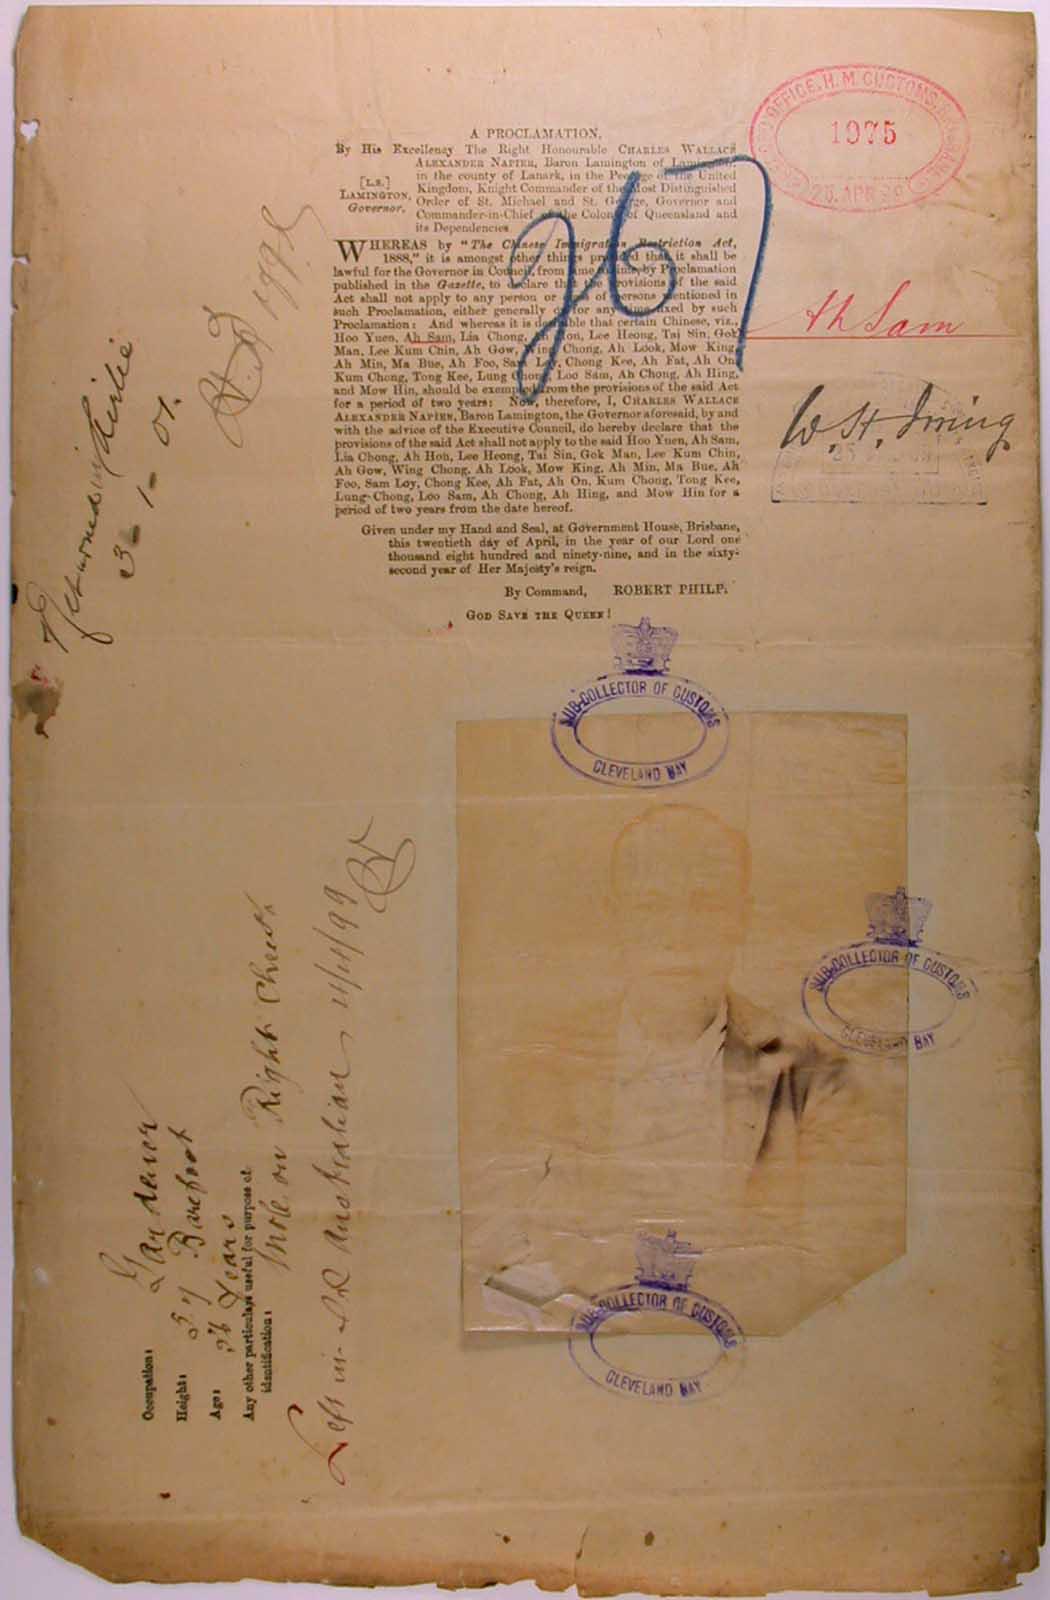 A PROCLAMATION.
By His Excellency The Right Honourable CHARLES WALLACE
ALEXANDER NAPIER, Baron Lamington of Lamington,
in the county of Lanark, in the Peerage of the United
Kingdom, Knight Commander of the Most Distinguished
Order of St. Michael and St. George, Governor and
Commander-in-Chief of the Colony of Queensland and
its Dependencies
[L.S.]
LAMINGTON,
Governor.
WHEREAS by "The Chinese Immigration Restriction Act,
1888," it is amongst other things provided that it shall be
lawful for the Governor in Council, from time to time, by Proclamation
published in the Gazette, to declare that the provisions of the said
Act shall not apply to any person or class of persons mentioned in
such Proclamation, either generally or for any time fixed by such
Proclamation: And whereas it is desirable that certain Chinese, viz.,
Hoo Yuen, Ah Sam, Lia Chong, Ah Hon, Lee Heong, Tai Sin, Gok
Man, Lee Kum Chin, Ah Gow, Wing Chong, Ah Look, Mow King,
Ah Min, Ma Bue, Ah Foo, Sam Loy, Chong Kee, Ah Fat, Ah On,
Kum Chong, Tong Kee, Lung Chong, Loo Sam, Ah Chong, Ah Hing,
and Mow Hin, should be exempted from the provisions of the said Act
for a period of two years: Now, therefore, I, CHARLES WALLACE
ALEXANDER NAPIER, Baron Lamington, the Governor aforesaid, by and
with the advice of the Executive Council, do hereby declare that the
provisions of the said Act shall not apply to the said Hoo Yuen, Ah Sam,
Lia Chong, Ah Hon, Lee Heong, Tai Sin, Gok Man, Lee Kum Chin,
Ah Gow, Wing Chong, Ah Look, Mow King, Ah Min, Ma Bue, Ah
Foo, Sam Loy, Chong Kee, Ah Fat, Ah On, Kum Chong, Tong Kee,
Lung Chong, Loo Sam, Ah Chong, Ah Hing, and Mow Hin for a
period of two years from the date hereof.
Given under my Hand and Seal, at Government House, Brisbane,
this twentieth day of April, in the year of our Lord one
thousand eight hundred and ninety-nine, and in the sixty-
second year of Her Majesty's reign.
By Command, ROBERT PHILP.
GOD SAVE THE QUEEN!
267
OFFICE, H. M. CUSTOMS,
1975
25. APR 99
Ah Sam
W. H. Irving
Returned
3-1-01.
SUB-COLLECTOR OF CUSTOMS
CLEVELAND BAY
SUB-COLLECTOR OF CUSTOMS
CLEVELAND BAY
SUB-COLLECTOR OF CUSTOMS
CLEVELAND BAY
Occupation: Gardener
Height: 5 7 Barefoot
Age: 36 Years
Any other particulars useful for purpose of
identification: Mole on Right Cheek
Left in Australian